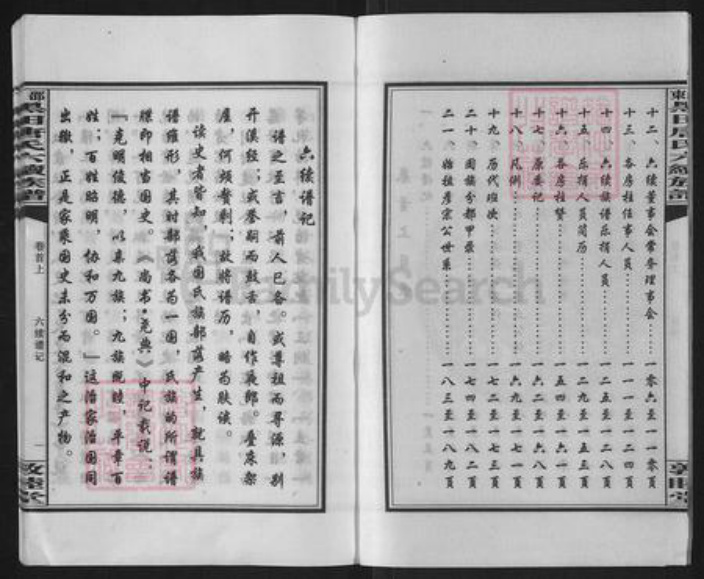 十二、六续董事会常务理事会……一零六至一一零页
十三、各房柱任事人员……一一一至一二四页
十四、六续族谱乐捐人员……一二五至一二八页
十五、乐捐人员简历……一二九至一五三页
十六、各房柱赞……一五四至一六一页
十七、原委记……一六二至一六八页
十八、凡例……一六九至一七一页
十九、历代班次……一七二至一七三页
二十、国族分部甲录……一七四至一八二页
二一、始祖彦宗公世系……一八三至一八九页
敦睦堂
六续谱记
谱之至言，前人已备。或尊祖而寻源，别
开溪径；或誉嗣而鼓舌，自作夜郎。叠床架
屋，何须赘剩；故将谱历，略为肤谈。
读史者皆知，我国氏族部落产生，就具族
谱雏形，其时部落各为一国，氏族的所谓谱
牒即相当国史。《尚书·尧典》中记载说：
“克明俊德，以亲九族；九族既睦，平章百
姓；百姓昭明，协和万国。”这治家治国同
出辙，正是家乘国史未分而混和之产物。
卷首上
六续谱记
一
敦睦堂
FamilySearch